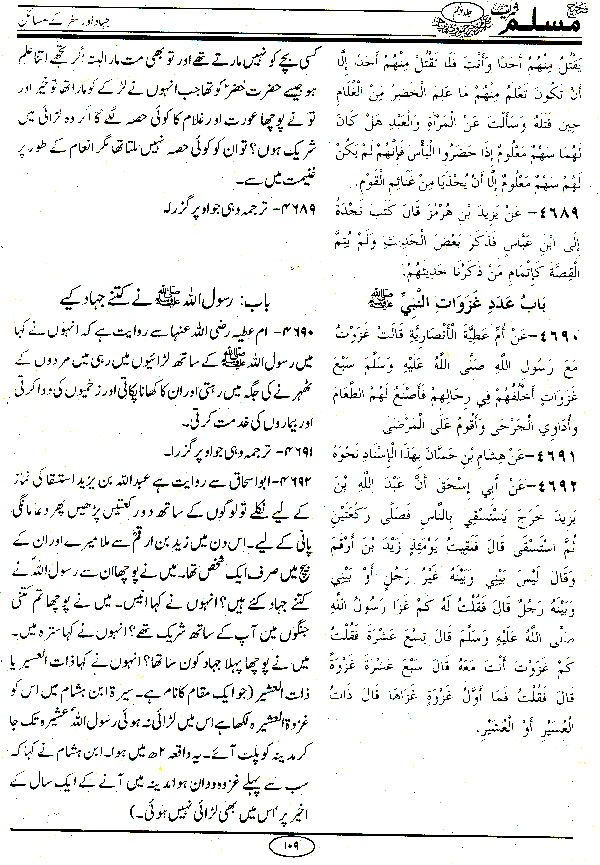 مسلم شریف
جلد پنجم
جہاد اور سفر کے مسائل
يَقْتُلُ مِنْهُمْ أَحَدًا وَأَنْتَ فَلَا تَقْتُلْ مِنْهُمْ أَحَدًا إِلَّا
أَنْ تَكُونَ تَعْلَمُ مِنْهُمْ مَا عَلِمَ الْخَضِرُ مِنْ الْغُلَامِ
حِينَ قَتَلَهُ وَسَأَلْتَ عَنْ الْمَرْأَةِ وَالْعَبْدِ هَلْ كَانَ
لَهُمَا سَهْمٌ مَعْلُومٌ إِذَا حَضَرُوا الْبَأْسَ فَإِنَّهُمْ لَمْ يَكُنْ
لَهُمْ سَهْمٌ مَعْلُومٌ إِلَّا أَنْ يُحْذَيَا مِنْ غَنَائِمِ الْقَوْمِ.
٤٦٨٩- عَنْ يَزِيدَ بْنِ هُرْمُزَ قَالَ كَتَبَ نَجْدَةُ
إِلَى ابْنِ عَبَّاسٍ فَذَكَرَ بَعْضَ الْحَدِيثِ وَلَمْ يُتِمَّ
الْقِصَّةَ كَإِتْمَامِ مَنْ ذَكَرْنَا حَدِيثَهُمْ.
بَابُ عَدَدِ غَزَوَاتِ النَّبِيِّ ﷺ
٤٦٩٠- عَنْ أُمِّ عَطِيَّةَ الْأَنْصَارِيَّةِ قَالَتْ غَزَوْتُ
مَعَ رَسُولِ اللهِ صَلَّى اللَّهُ عَلَيْهِ وَسَلَّمَ سَبْعَ
غَزَوَاتٍ أَخْلُفُهُمْ فِي رِحَالِهِمْ فَأَصْنَعُ لَهُمْ الطَّعَامَ
وَأُدَاوِي الْجَرْحَى وَأَقُومُ عَلَى الْمَرْضَى
٤٦٩١- عَنْ هِشَامِ بْنِ حَسَّانَ بِهَذَا الْإِسْنَادِ نَحْوَهُ
٤٦٩٢- عَنْ أَبِي إِسْحَقَ أَنَّ عَبْدَ اللَّهِ بْنَ
يَزِيدَ خَرَجَ يَسْتَسْقِي بِالنَّاسِ فَصَلَّى رَكْعَتَيْنِ
ثُمَّ اسْتَسْقَى قَالَ فَلَقِيتُ يَوْمَئِذٍ زَيْدَ بْنَ أَرْقَمَ
وَقَالَ لَيْسَ بَيْنِي وَبَيْنَهُ غَيْرُ رَجُلٍ أَوْ بَيْنِي
وَبَيْنَهُ رَجُلٌ قَالَ فَقُلْتُ لَهُ كَمْ غَزَا رَسُولُ اللَّهِ
صَلَّى اللَّهُ عَلَيْهِ وَسَلَّمَ قَالَ تِسْعَ عَشْرَةَ فَقُلْتُ
كَمْ غَزَوْتَ أَنْتَ مَعَهُ قَالَ سَبْعَ عَشْرَةَ غَزْوَةً
قَالَ فَقُلْتُ فَمَا أَوَّلُ غَزْوَةٍ غَزَاهَا قَالَ ذَاتُ
الْعُسَيْرِ أَوْ الْعُشَيْرِ.
کسی بچے کو نہیں مارتے تھے اور تو بھی مت مار البتہ اگر تجھے اتنا علم
ہو جیسے حضرت خضرؑ کو تھا جب انہوں نے لڑکے کو مارا تھا تو خیر اور
تو نے پوچھا عورت اور غلام کا کوئی حصہ لگے گا اگر وہ لڑائی میں
شریک ہوں؟ تو ان کو کوئی حصہ نہیں ملتا تھا مگر انعام کے طور پر
غنیمت میں سے۔
۴۶۸۹- ترجمہ وہی جو اوپر گزرا۔
باب: رسول اللہ ﷺ نے کتنے جہاد کیے
۴۶۹۰- ام عطیہ رضی اللہ عنہا سے روایت ہے کہ انہوں نے کہا
میں رسول اللہ ﷺ کے ساتھ لڑائیوں میں رہی میں مردوں کے
ٹھہرنے کی جگہ میں رہتی اور ان کا کھانا پکاتی اور زخمیوں کی دوا کرتی
اور بیماروں کی خدمت کرتی۔
۴۶۹۱- ترجمہ وہی جو اوپر گزرا۔
۴۶۹۲- ابو اسحاق سے روایت ہے عبداللہ بن یزید استسقا کی نماز
کے لیے نکلے تو لوگوں کے ساتھ دو رکعتیں پڑھیں پھر دعا مانگی
پانی کے لیے۔ اس دن میں زید بن ارقمؓ سے ملا میرے اور ان کے
بیچ میں صرف ایک شخص تھا۔ میں نے پوچھا ان سے رسول اللہؐ نے
کتنے جہاد کئے ہیں؟ انہوں نے کہا انیس۔ میں نے پوچھا تم کتنی
جنگوں میں آپ کے ساتھ شریک تھے؟ انہوں نے کہا سترہ میں۔
میں نے پوچھا پہلا جہاد کون سا تھا؟ انہوں نے کہا ذات العسیر یا
ذات العشیر (جو ایک مقام کا نام ہے۔ سیرۃ ابن ہشام میں اس کو
غزوۃ العشیرہ لکھا ہے اس میں لڑائی نہ ہوئی رسول اللہؐ عشیرہ تک جا
کر مدینہ کو پلٹ آئے۔ یہ واقعہ ۲ھ میں ہوا۔ ابن ہشام نے کہا کہ
سب سے پہلے غزوہ ودان ہوا مدینہ میں آنے کے ایک سال کے
اخیر پر' اس میں بھی لڑائی نہیں ہوئی۔)
۱۰۹